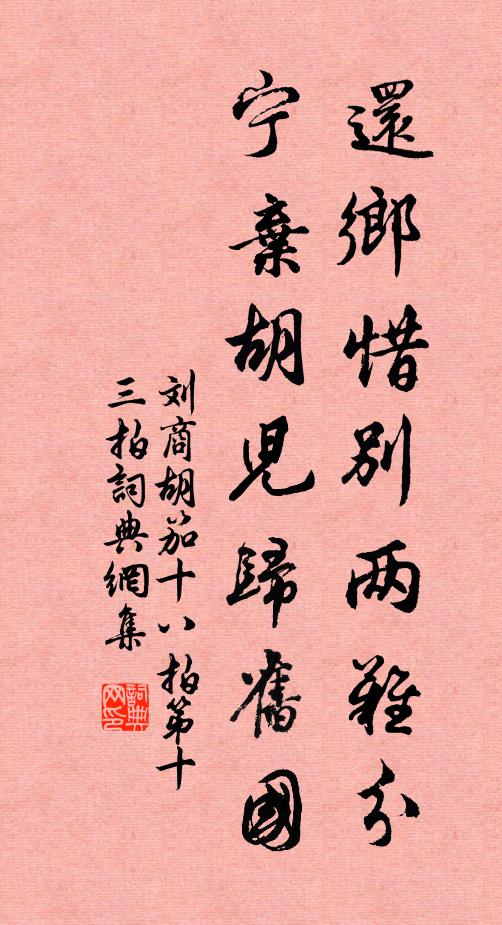 還鄉惜別两難分
宁棄胡兒歸舊國
刘商胡笳十八拍第十
三拍詞典網集
詞典网印